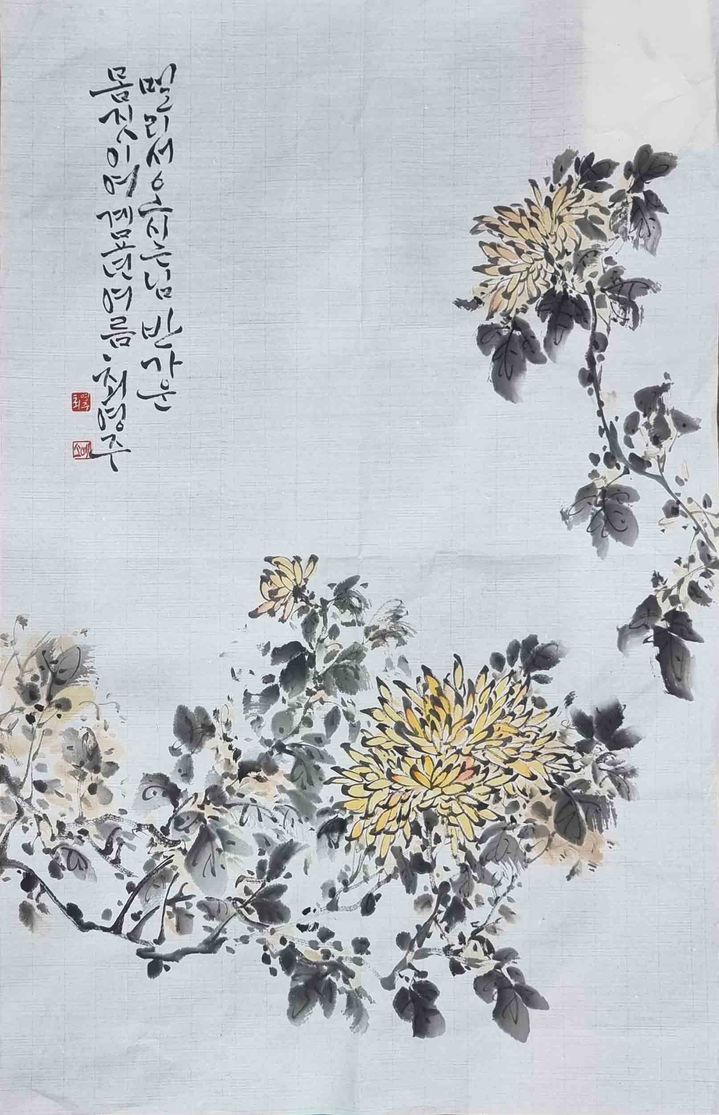 멀리서 오시는 님 반가운
몸짓이여 계묘년 여름 최영주